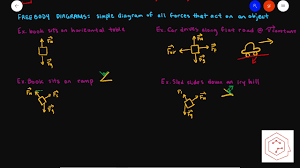 FREE BODY DIAGRAMS: simple diagram of all forces that act on an object
Ex: book sits on horizontal table
Ex: Car drives along flat road @ v constant
Fn
Fg
Fn
Fg
Ex: Book sits on ramp
Ex: Sled slides down an icy hill
Fn
Ff
Fg
Fn
Fg